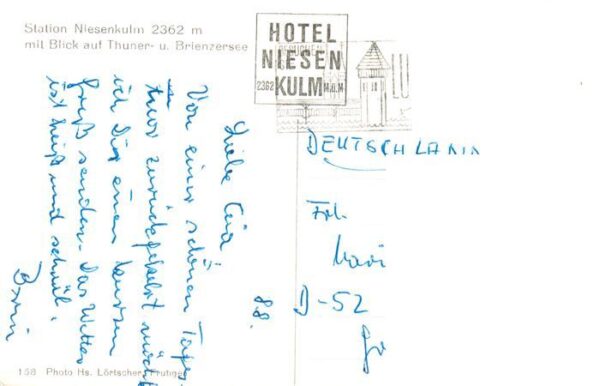 Station Niesenkulm 2362 m
mit Blick auf Thuner- u. Brienzersee
HOTEL
NIESEN
2362 KULM M.ü.M
LU
8.8.
Liebe
Von einer schönen
zurückgekehrt möcht
ich Dir einen kurzen
Gruß senden. Das Wetter
ist heiß und schwül.
DEUTSCHLAND
Frl.
D-52
158 Photo Hs. Lörtscher, Frutigen